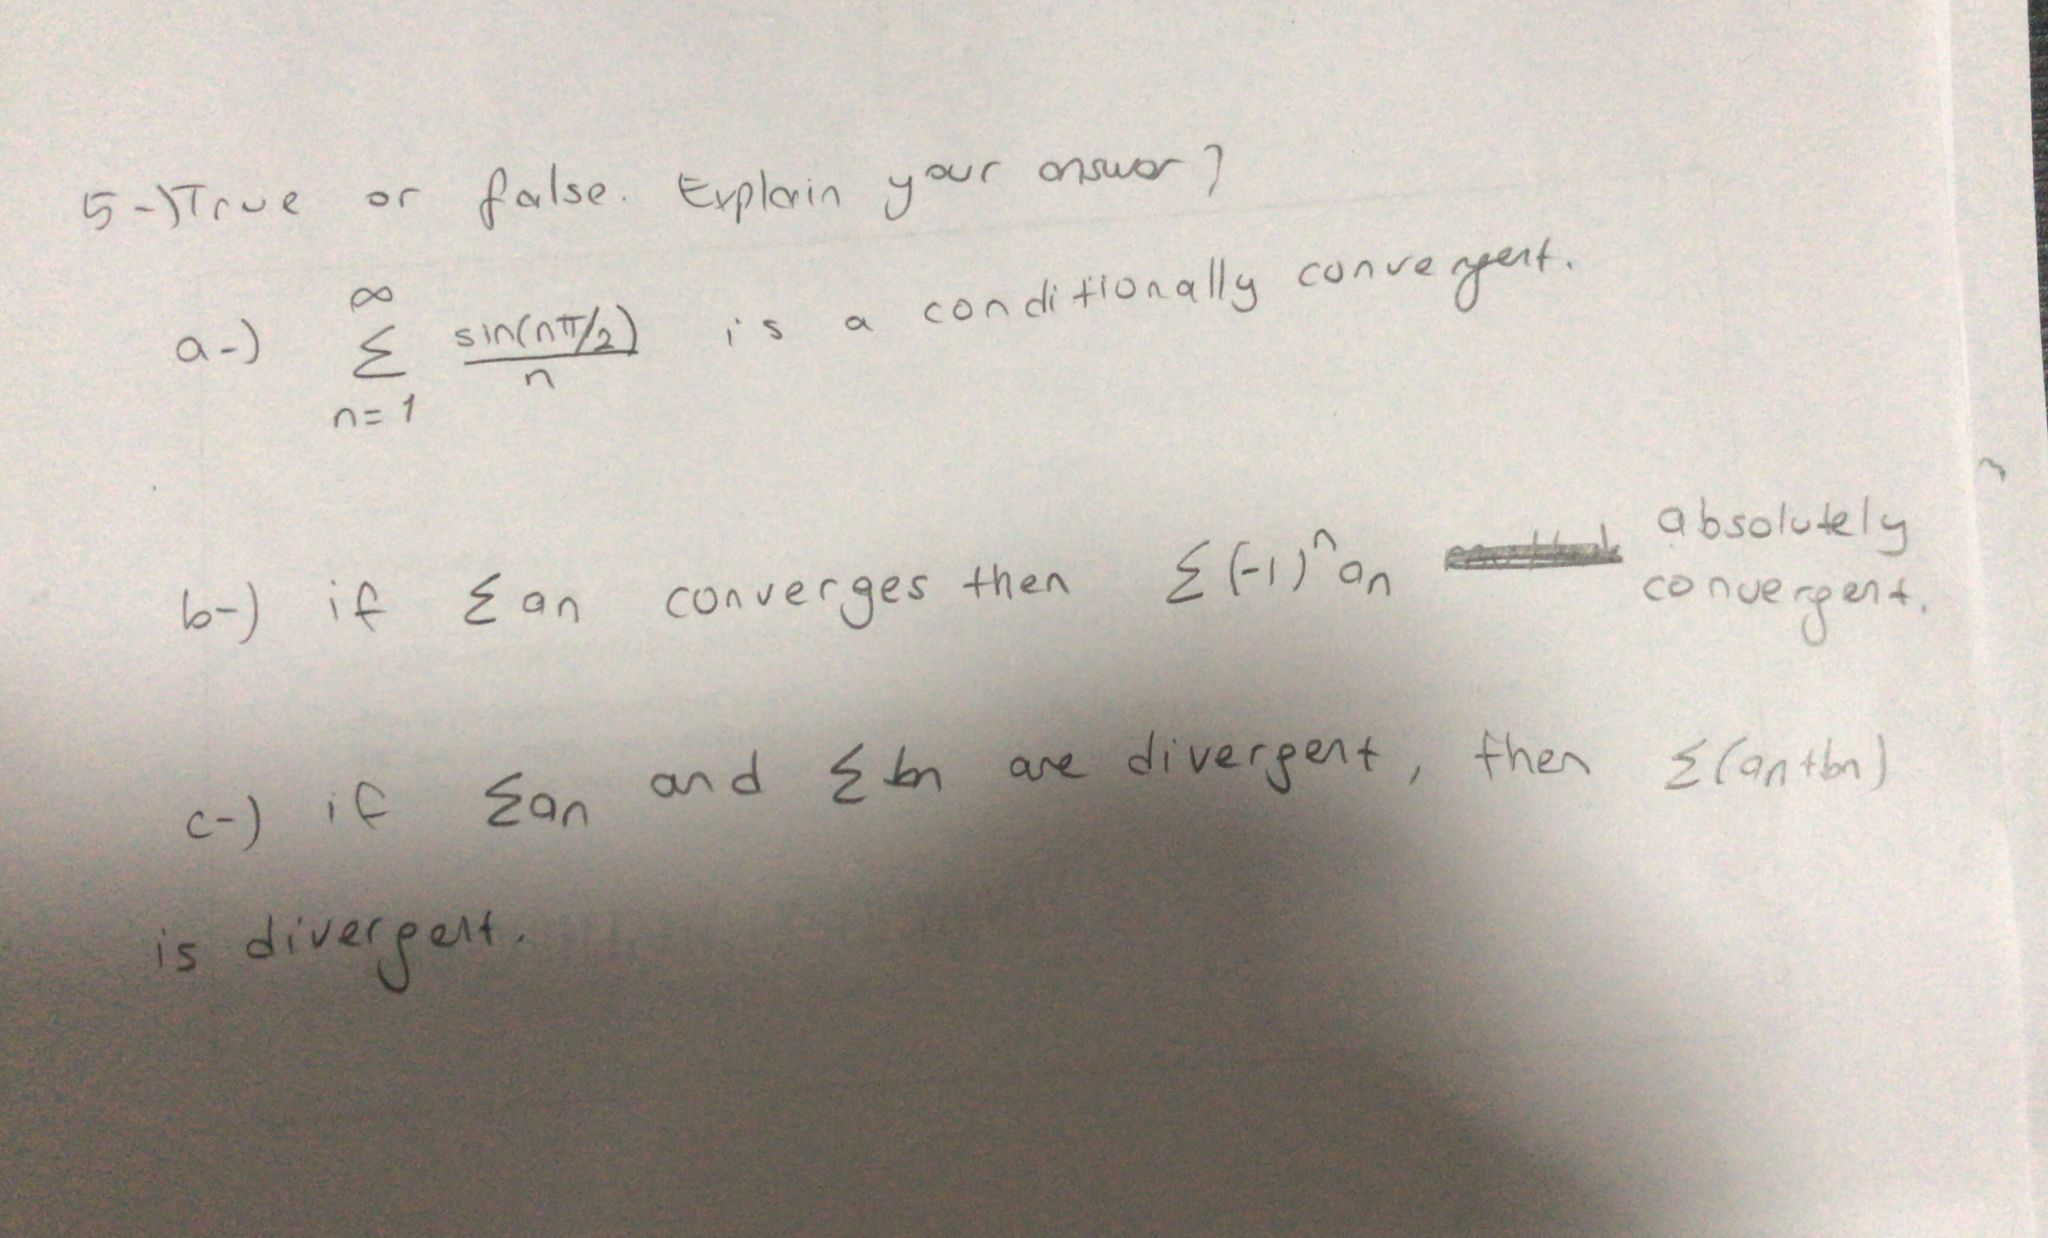 5-) True or false. Explain your answer?
a-) ∞ Σ n=1 sin(nπ/2)/n is a conditionally convergent.
b-) if Σan converges then Σ(-1)^n an absolutely
convergent.
c-) if Σan and Σbn are divergent, then Σ(an+bn)
is divergent.